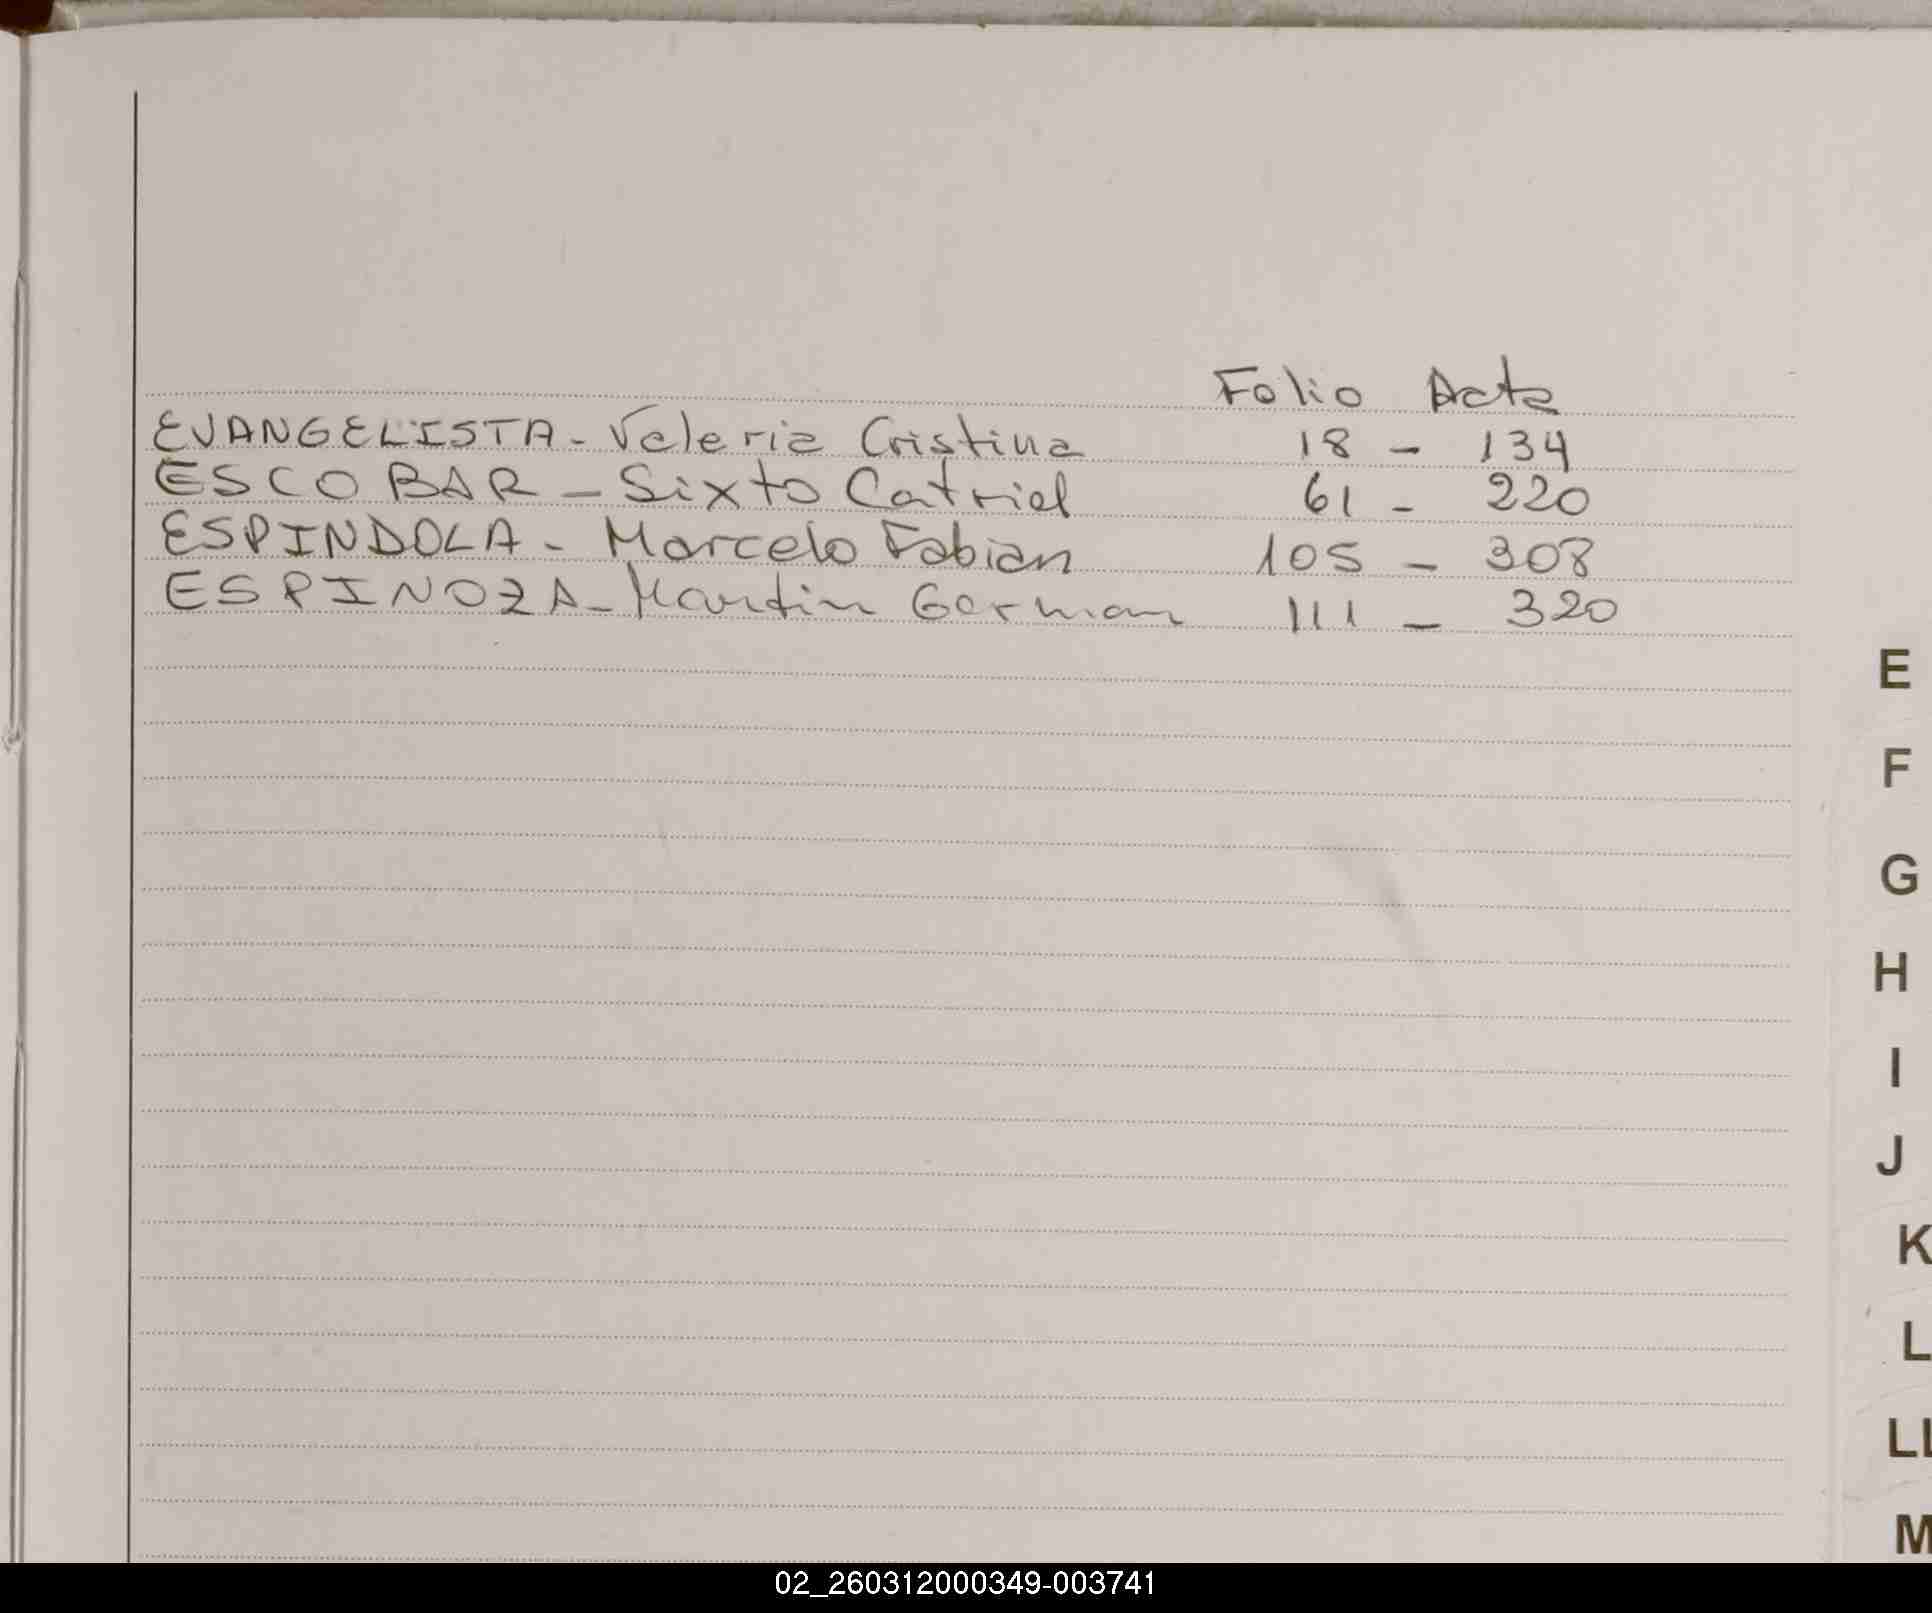 Folio Acta
EVANGELISTA - Valeria Cristina 18 - 134
ESCOBAR - Sixto Catriel 61 - 220
ESPINDOLA - Marcelo Fabian 105 - 308
ESPINOZA - Martin German 111 - 320
E
F
G
H
I
J
K
L
LL
M
02_260312000349-003741